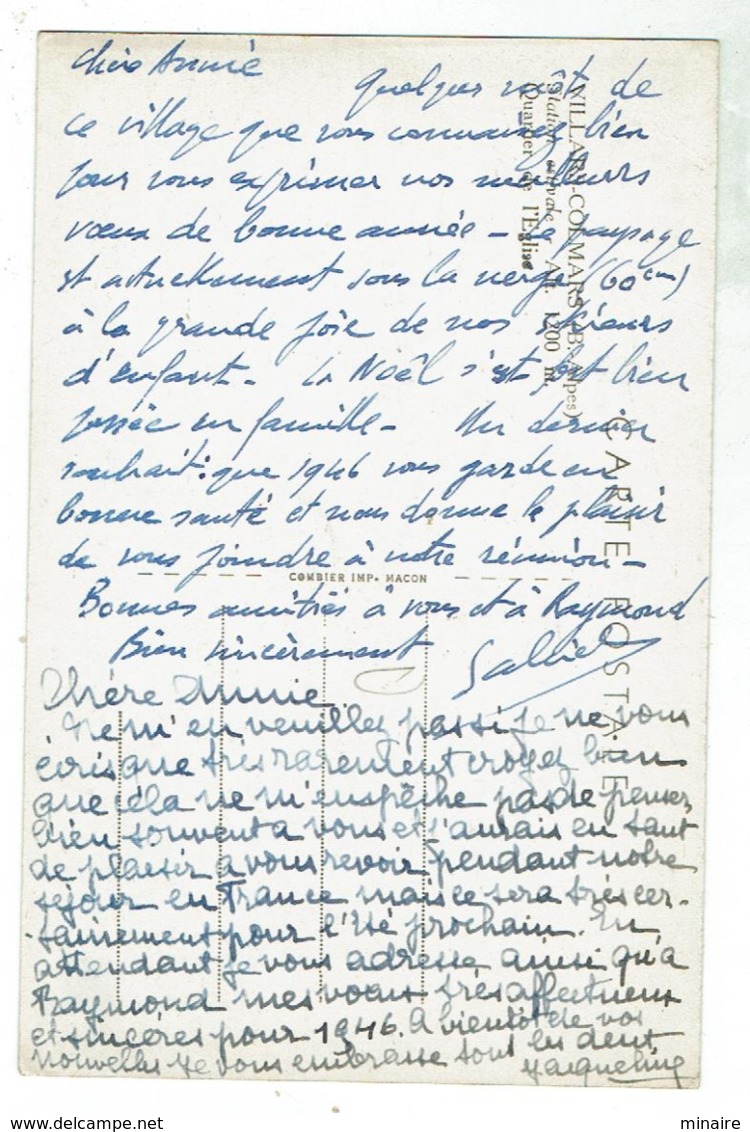 Chère Annie
Quelques mots de
ce village que vous connaissez bien
pour vous exprimer nos meilleurs
vœux de bonne année - Le paysage
est actuellement sous la neige (60 cm)
à la grande joie de nos
d'enfant - La Noël s'est fort bien
passée en famille - Un dernier
souhait : que 1946 vous garde en
bonne santé et nous donne le plaisir
de vous joindre à notre réunion -
Bonnes amitiés à vous et à Raymond
Bien sincèrement
VILLARS-COLMARS (B.-Alpes)
Station estivale - Alt. 1200 m.
Quartier de l'Eglise
CARTE POSTALE
COMBIER IMP. MACON
Chère Annie
Ne m'en veuillez pas si je ne vous
écris que très rarement croyez bien
que céla ne m'enspêche pas de penser
bien souvent a vous et j'aurais eu tant
de plaisir a vous revoir pendant notre
séjour en France mais ce sera très cer-
-tainement pour l'Été prochain. En
attendant je vous adresse ainsi qu'a
Raymond mes vœux très affectueux
et sincères pour 1946. A bientôt de vos
nouvelles je vous embrasse tous les deux
Jacqueline
minaire
delcampe.net